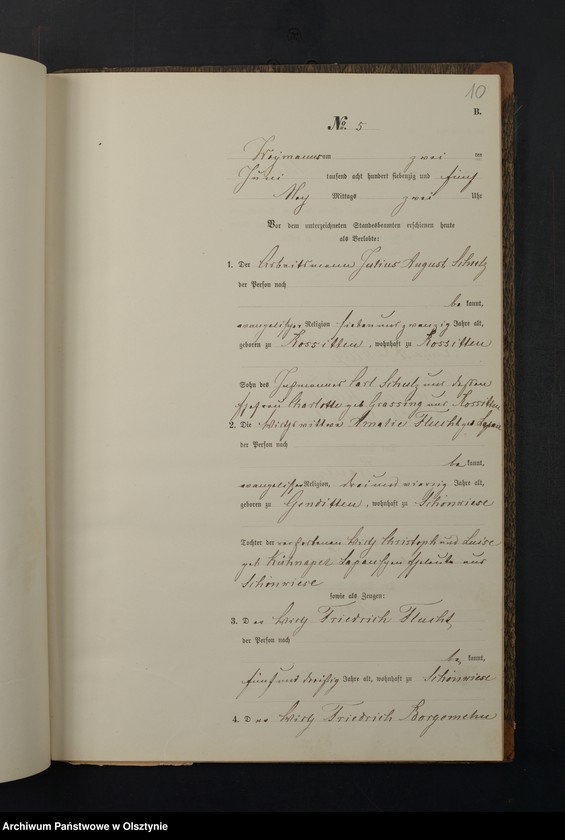 10
B.
No. 5
am zwei ten
Juni tausend acht hundert siebenzig und fünf
Mittags zwei Uhr
Vor dem unterzeichneten Standesbeamten erschienen heute
als Verlobte:
1. Der Arbeitsmann Julius August Schulz
der Person nach
be kannt,
evangelischer Religion sieben und zwanzig Jahre alt,
geboren zu Rossitten, wohnhaft zu Rossitten
Sohn des Carl Schulz und dessen
Ehefrau Charlotte geb Grassing aus Rossitten
2. Die Wirthswittwe Amalie Flucht geb Lapau
der Person nach
be kannt,
evangelischer Religion, drei und vierzig Jahre alt,
geboren zu Gonditten, wohnhaft zu Schönwiese
Tochter der verstorbenen Wirth Christoph und Luise
geb Kühnapel Lapauschen Eheleute aus
Schönwiese
sowie als Zeugen:
3. Der Wirth Friedrich Flucht
der Person nach
be kannt,
fünf und dreißig Jahre alt, wohnhaft zu Schönwiese
4. Der Wirth Friedrich Borgomehn
Archiwum Państwowe w Olsztynie